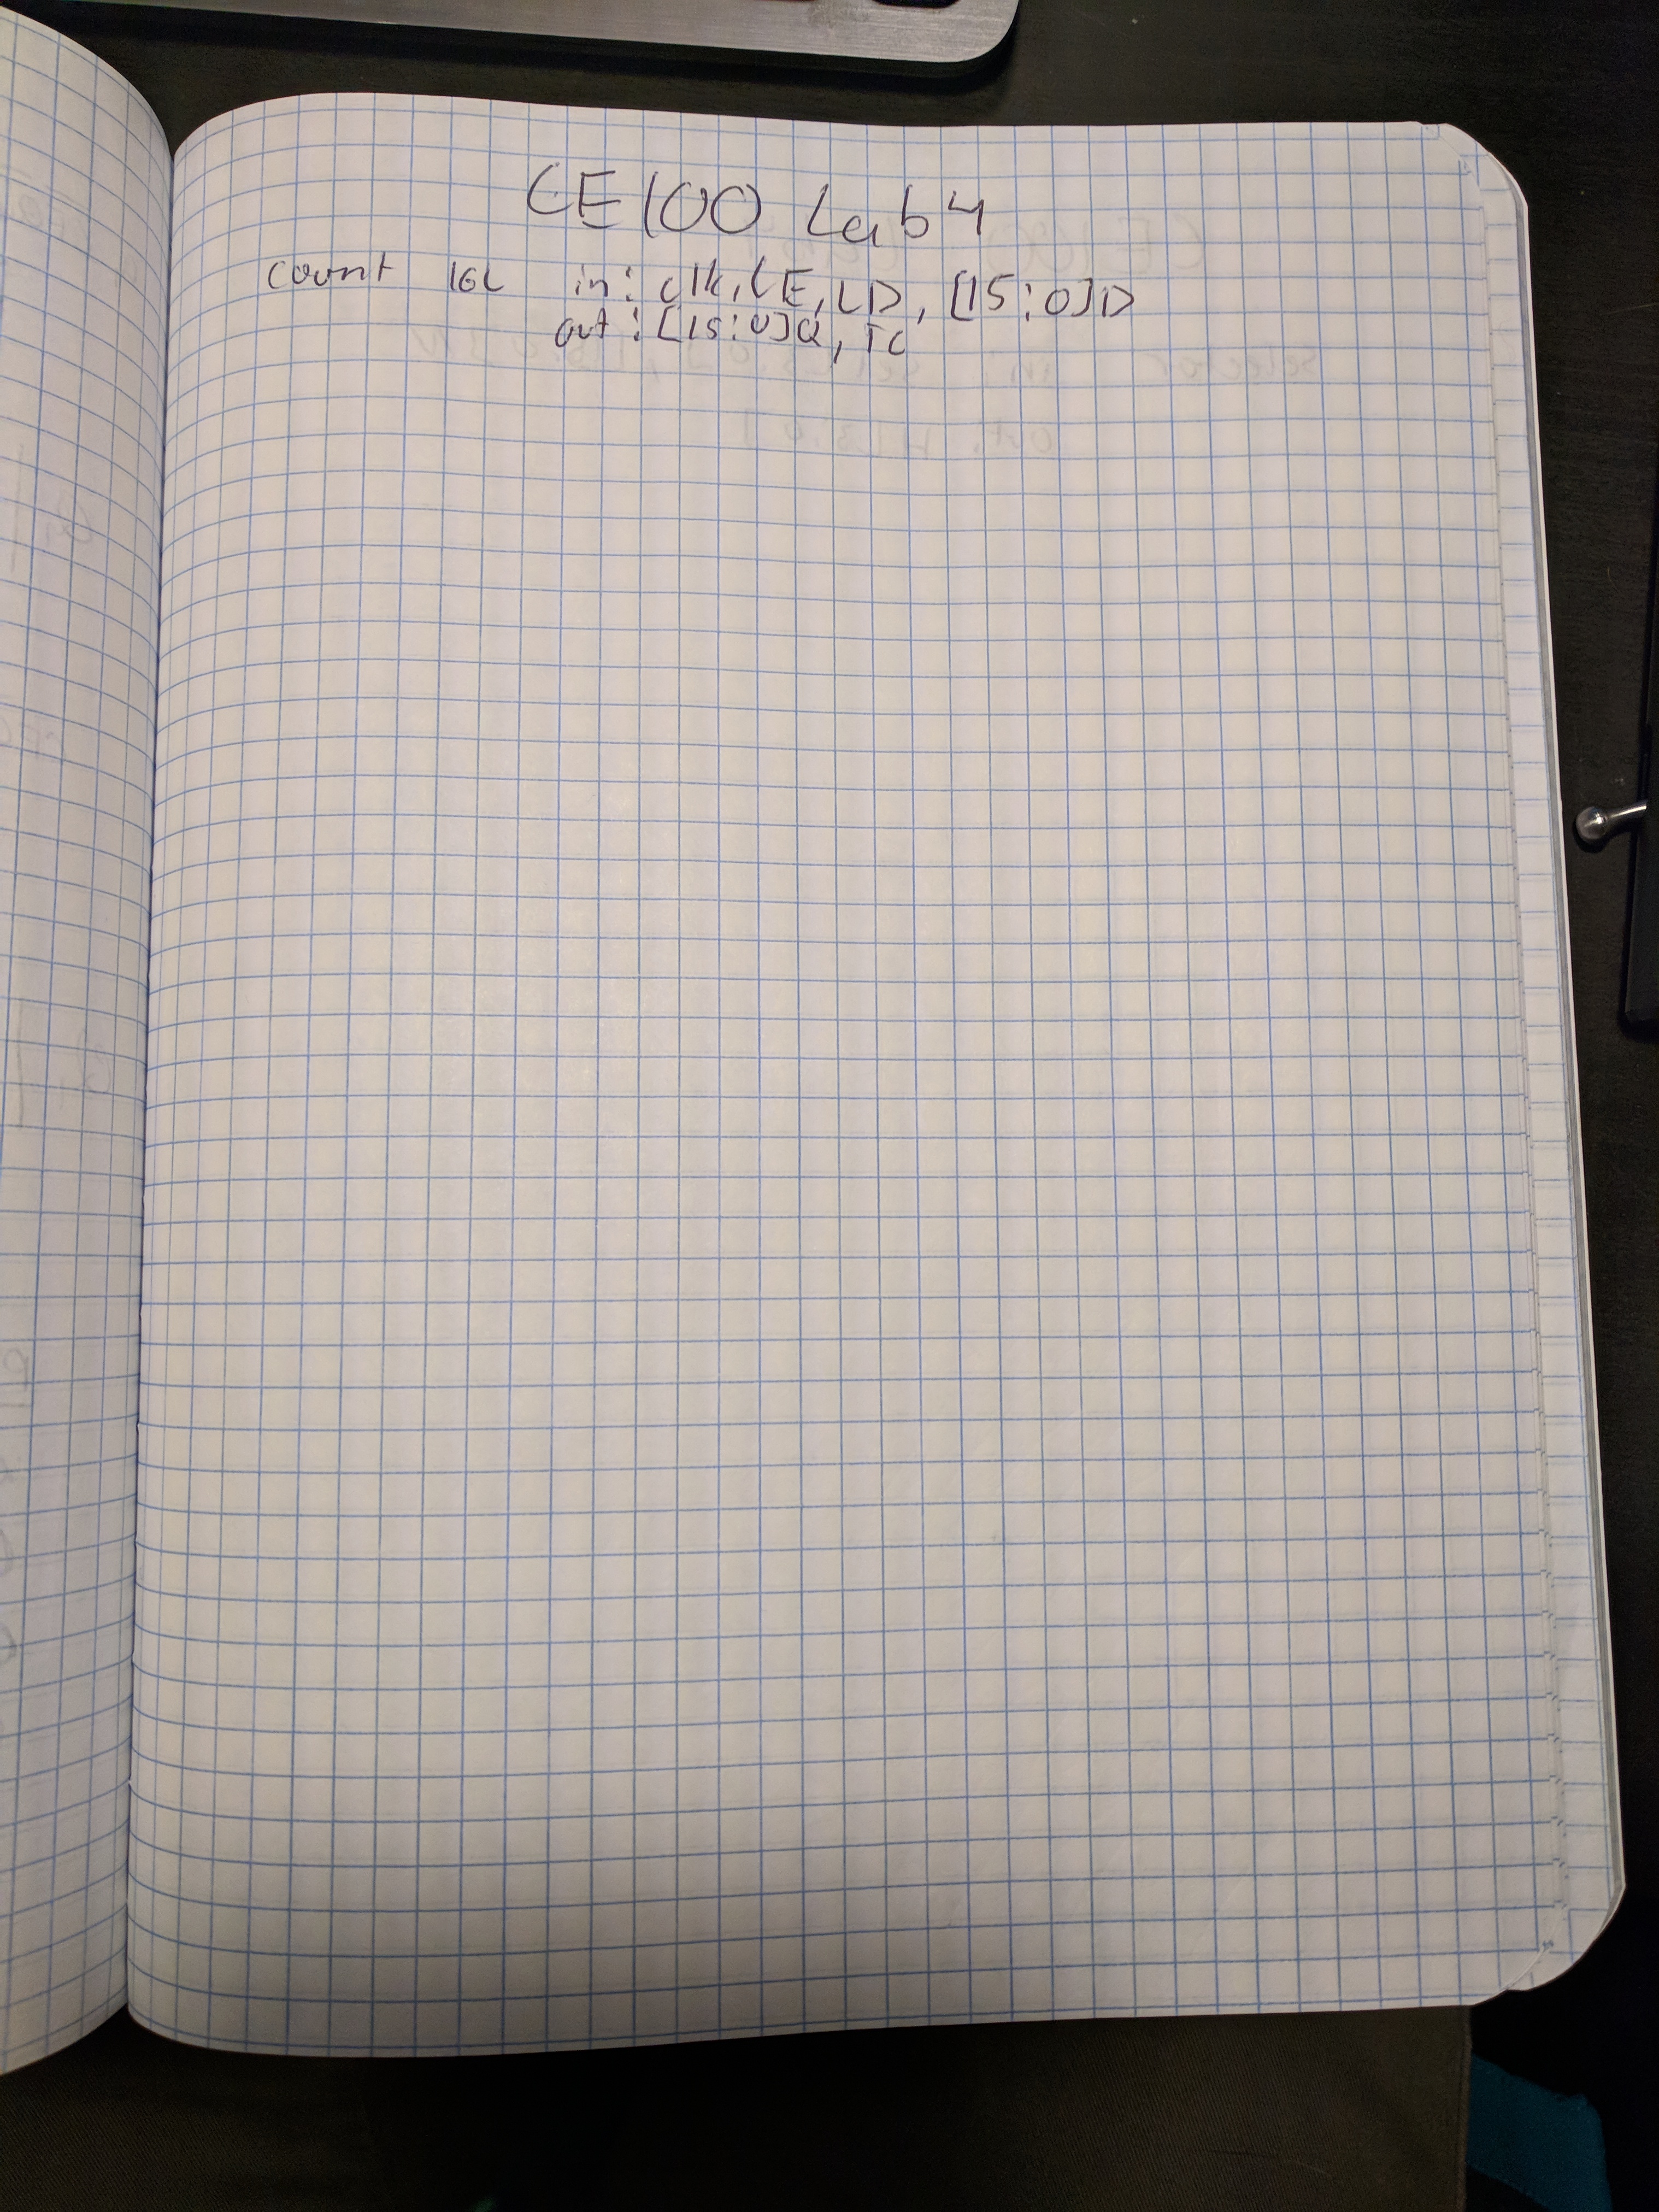 CE100 Lab 4
count 16L in: clk, CE, LD, [15:0]D
out: [15:0]Q, TC